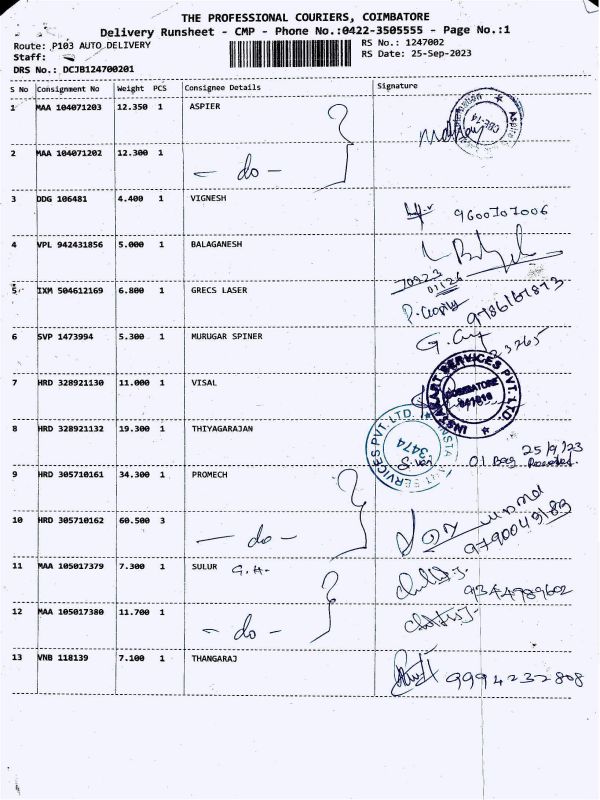 THE PROFESSIONAL COURIERS, COIMBATORE
Delivery Runsheet - CMP - Phone No.:0422-3505555 - Page No.:1
Route: P103 AUTO DELIVERY
RS No.: 1247002
Staff:
RS Date: 25-Sep-2023
DRS No.: DCJB124700201
S No Consignment No Weight PCS Consignee Details Signature
1 MAA 104071203 12.350 1 ASPIER
2 MAA 104071202 12.300 1
- do -
3 DDG 106481 4.400 1 VIGNESH
9600707006
4 VPL 942431856 5.000 1 BALAGANESH
5 IXM 504612169 6.800 1 GRECS LASER
9786161873
6 SVP 1473994 5.300 1 MURUGAR SPINER
7 HRD 328921130 11.000 1 VISAL
INSTAKART SERVICES PVT. LTD.
COIMBATORE
8 HRD 328921132 19.300 1 THIYAGARAJAN
INSTAKART SERVICES PVT. LTD.
3474
25/9/23
01 Bag Received.
9 HRD 305710161 34.300 1 PROMECH
10 HRD 305710162 60.500 3
- do -
9790049183
11 MAA 105017379 7.300 1 SULUR G.H.
9344789602
12 MAA 105017380 11.700 1
- do -
13 VNB 118139 7.100 1 THANGARAJ
9994232808